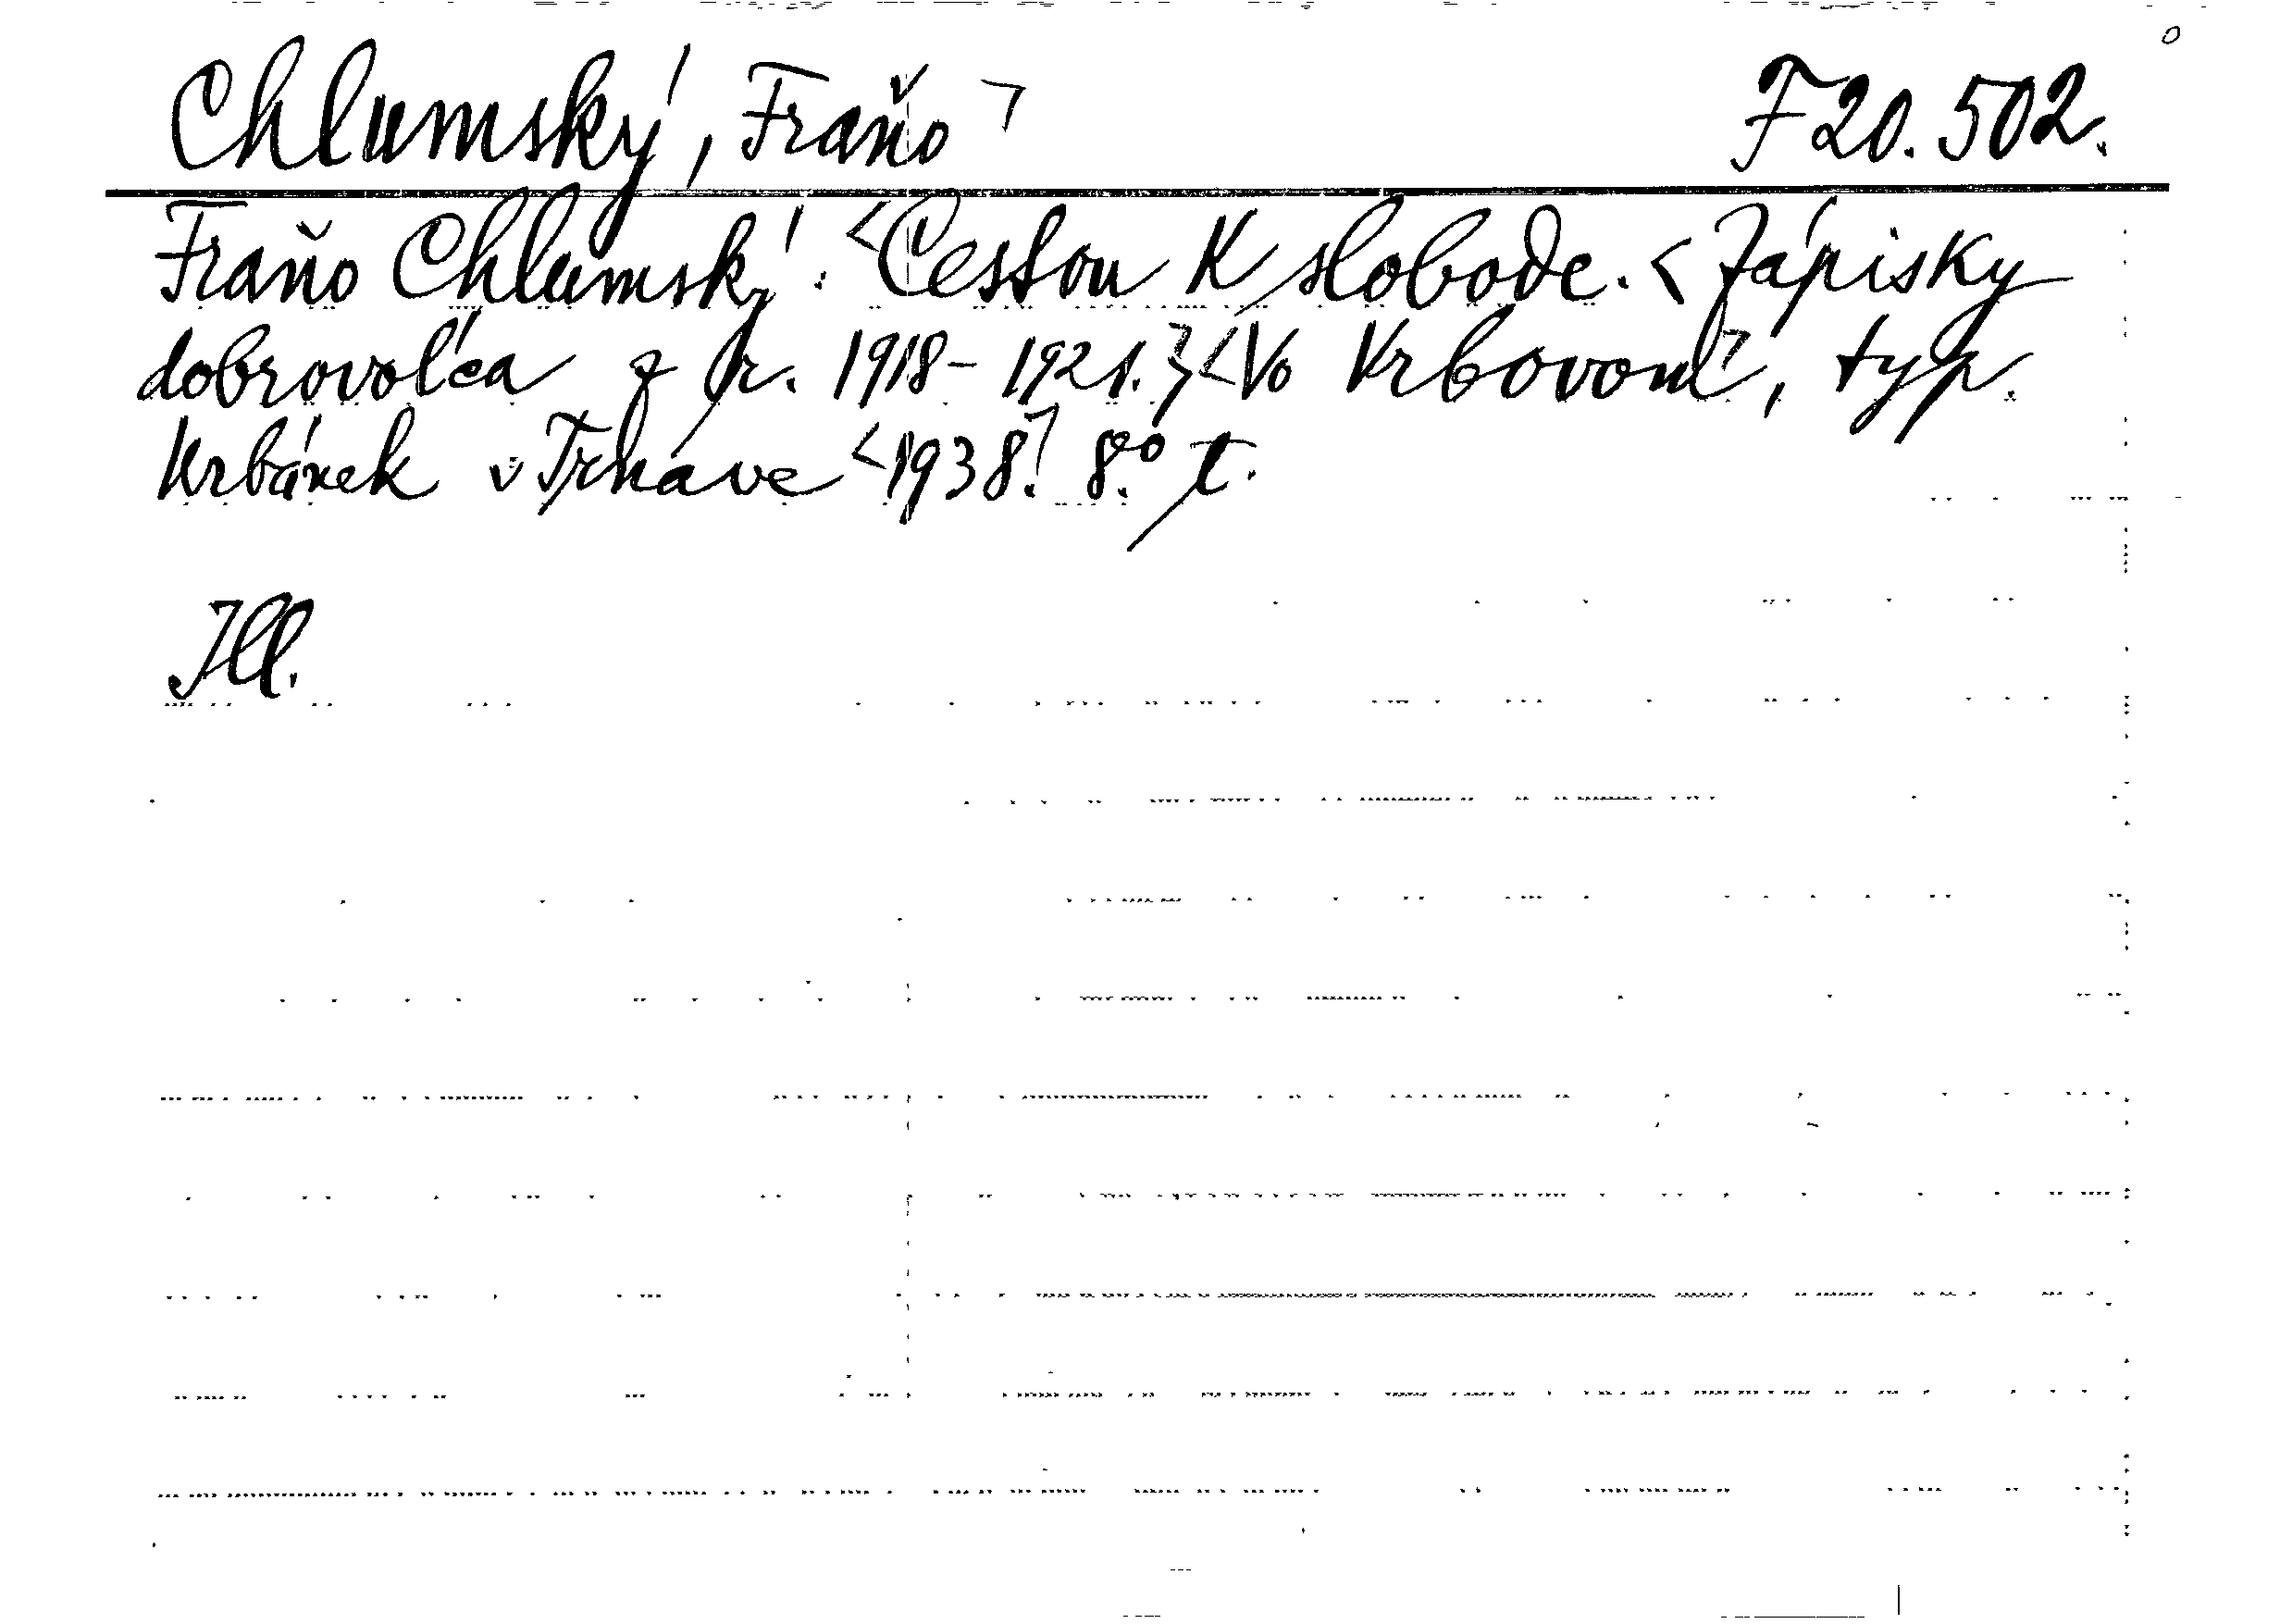 Chlumský, Fraňo ㄱ F 20.502.
Fraňo Chlumský: <Cestou k slobode. <Zápisky
dobrovoľca z r. 1918-1921.> <Vo Vrbovom>, typ.
Urbánek v Trnave <1938.> 8.° t.
Ill.